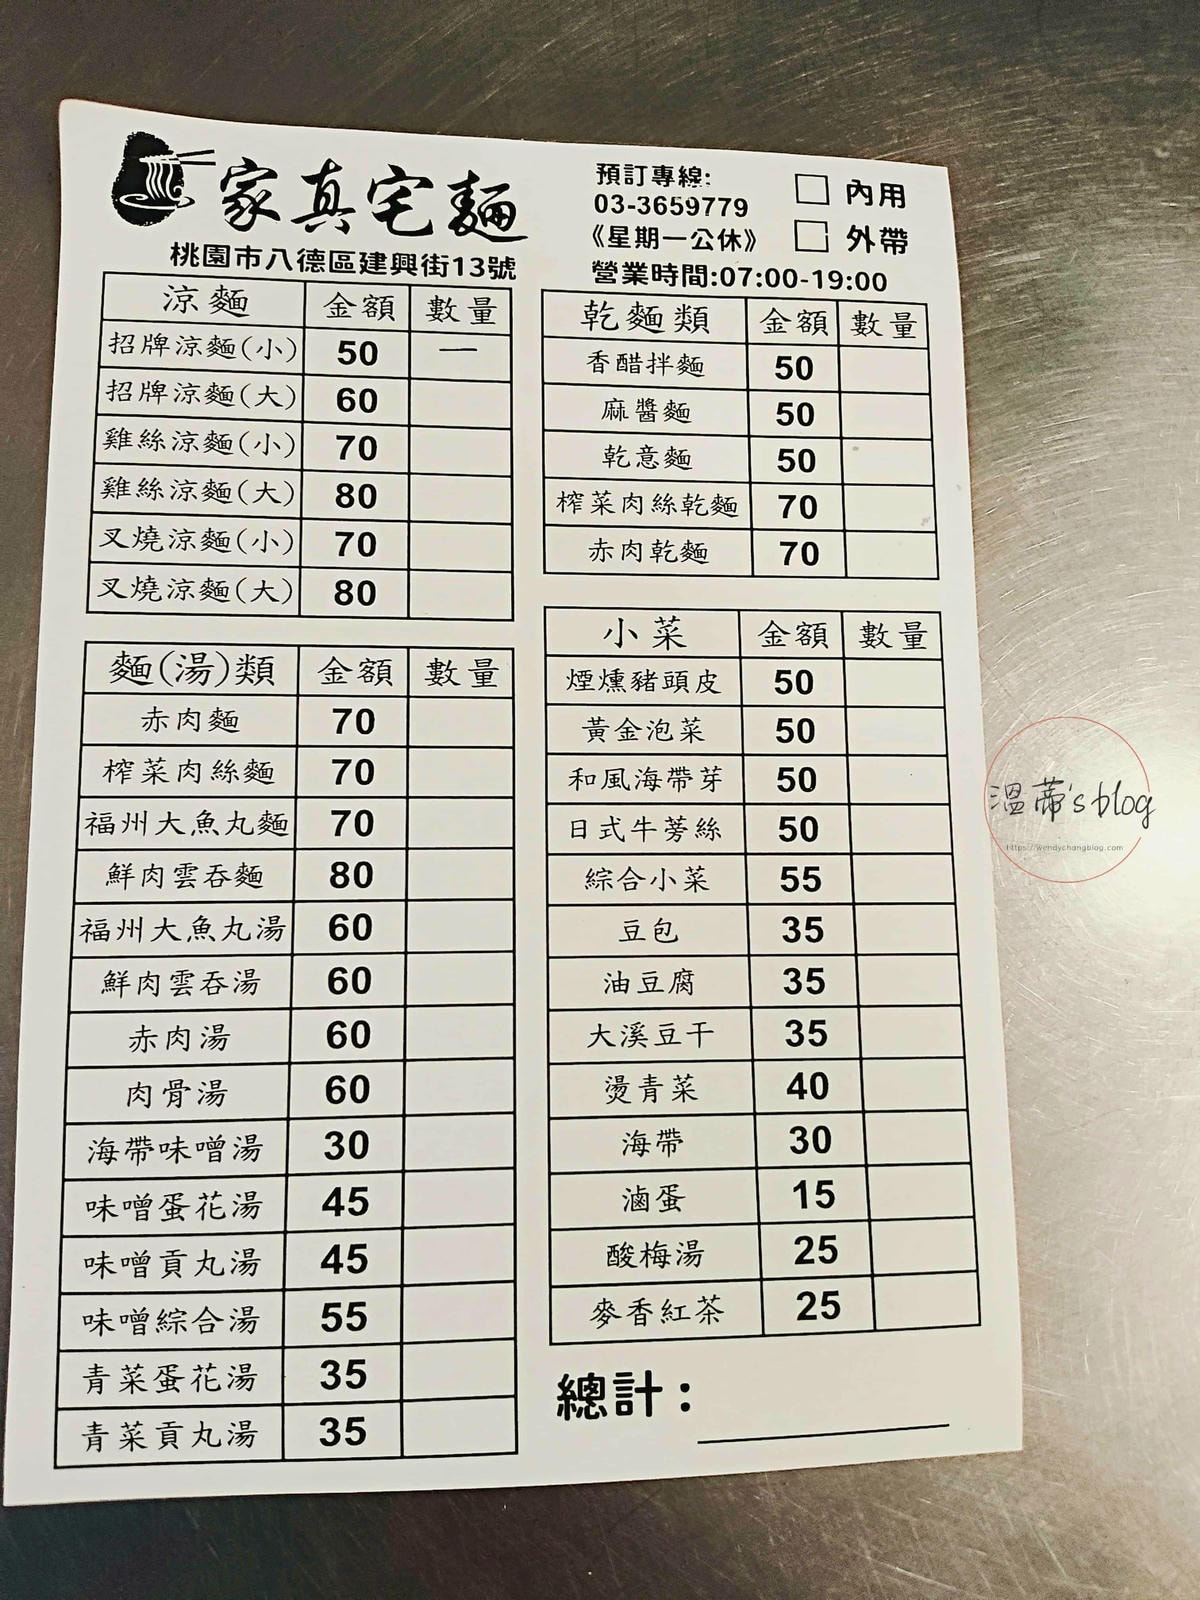 家真宅麵
桃園市八德區建興街13號
預訂專線:
03-3659779
《星期一公休》
營業時間:07:00-19:00
□ 內用
□ 外帶
涼麵 金額 數量
招牌涼麵(小) 50 一
招牌涼麵(大) 60
雞絲涼麵(小) 70
雞絲涼麵(大) 80
叉燒涼麵(小) 70
叉燒涼麵(大) 80
麵(湯)類 金額 數量
赤肉麵 70
榨菜肉絲麵 70
福州大魚丸麵 70
鮮肉雲吞麵 80
福州大魚丸湯 60
鮮肉雲吞湯 60
赤肉湯 60
肉骨湯 60
海帶味噌湯 30
味噌蛋花湯 45
味噌貢丸湯 45
味噌綜合湯 55
青菜蛋花湯 35
青菜貢丸湯 35
乾麵類 金額 數量
香醋拌麵 50
麻醬麵 50
乾意麵 50
榨菜肉絲乾麵 70
赤肉乾麵 70
小菜 金額 數量
煙燻豬頭皮 50
黃金泡菜 50
和風海帶芽 50
日式牛蒡絲 50
綜合小菜 55
豆包 35
油豆腐 35
大溪豆干 35
燙青菜 40
海帶 30
滷蛋 15
酸梅湯 25
麥香紅茶 25
總計：
溫蒂's blog
https://wendychangblog.com